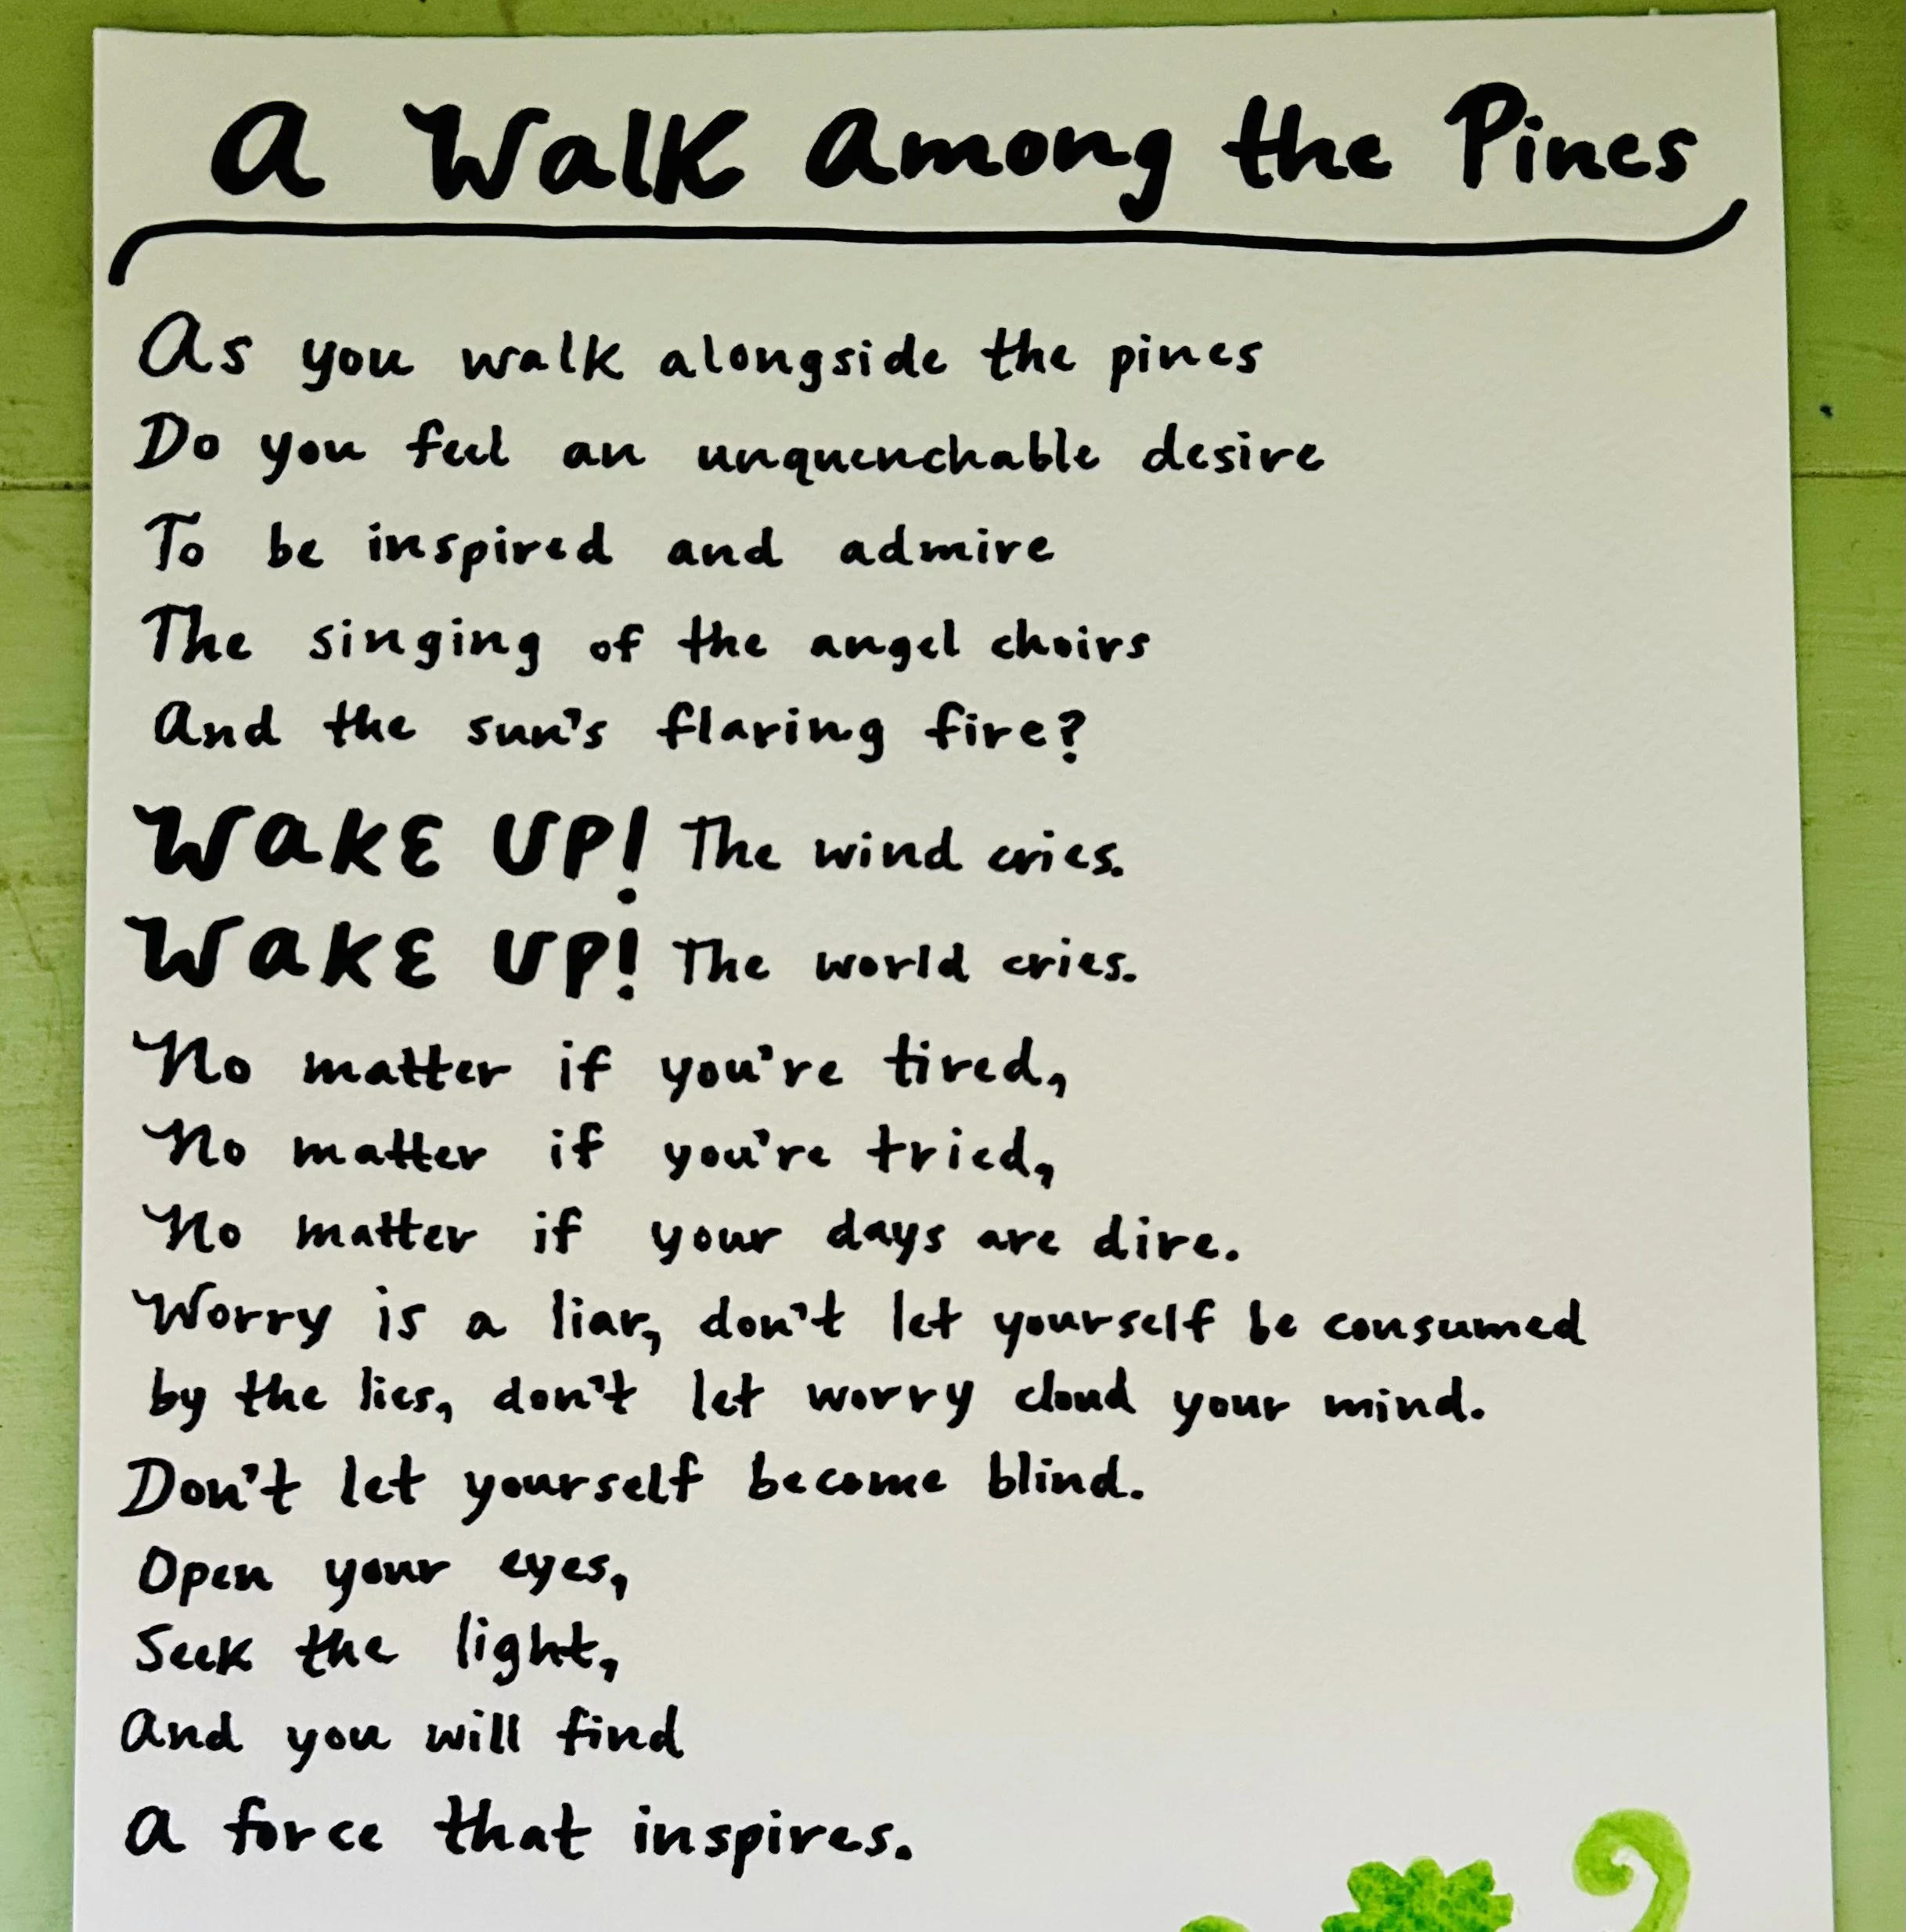 A Walk Among the Pines
As you walk alongside the pines
Do you feel an unquenchable desire
To be inspired and admire
The singing of the angel choirs
And the sun's flaring fire?
WAKE UP! The wind cries.
WAKE UP! The world cries.
No matter if you're tired,
No matter if you're tried,
No matter if your days are dire.
Worry is a liar, don't let yourself be consumed
by the lies, don't let worry cloud your mind.
Don't let yourself become blind.
Open your eyes,
Seek the light,
And you will find
A force that inspires.